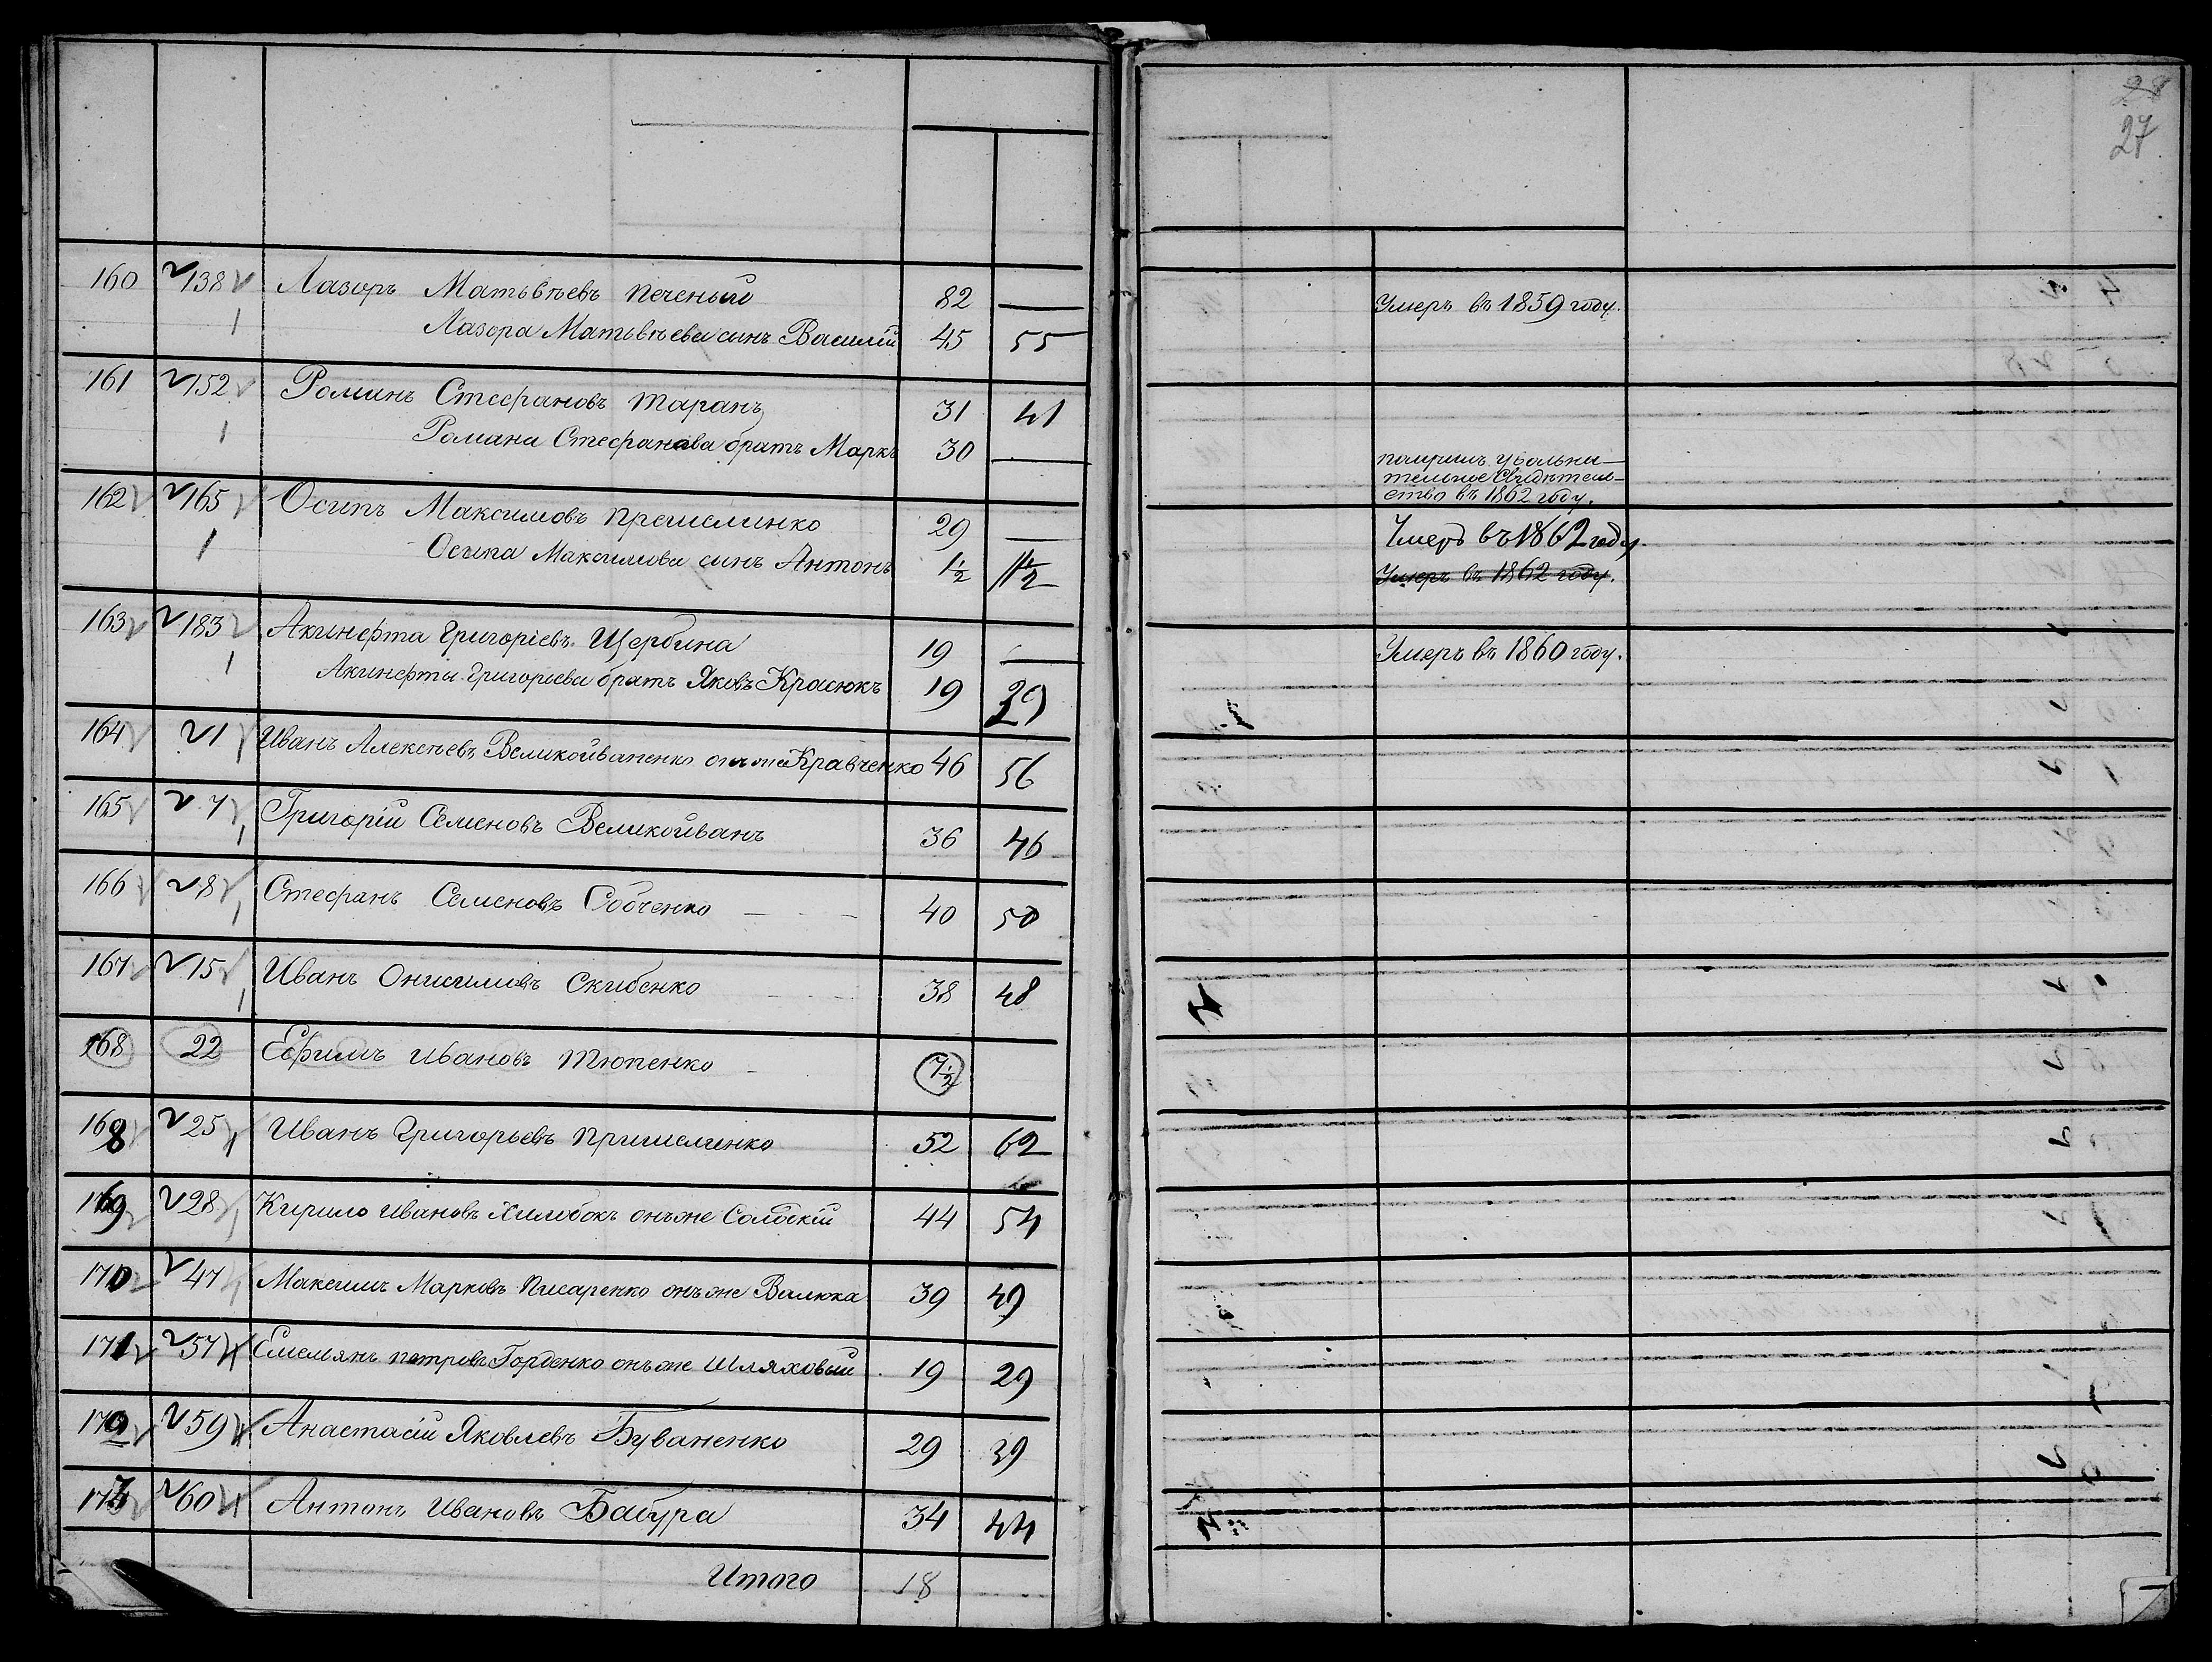 28
27
160 138 Лазоръ Матьвѣевъ Печеный 82 — Умеръ въ 1859 году.
1 Лазора Матьвѣева сынъ Василій 45 55
161 152 Романъ Стефановъ Таранъ 31 41
1 Романа Стефанова братъ Маркъ 30 —
получилъ увольни-
тельное Свидѣтель-
ство въ 1862 году.
162 165 Осипъ Максимовъ Прешелинко 29 — Умеръ въ 1862 году.
1 Осипа Максимова сынъ Антонъ 1½ 11½ Умеръ въ 1862 году.
163 183 Акинфта Григоріевъ Щербина 19 — Умеръ въ 1860 году.
1 Акинфты Григорьева братъ Яковъ Красюкъ 19 29
164 1 Иванъ Алексѣевъ Великоиваненко онъ же Кравченко 46 56
165 7 1 Григорій Семеновъ Великойванъ 36 46
166 8 1 Стефанъ Семеновъ Собченко 40 50
167 15 1 Иванъ Онисимовъ Скибенко 38 48
168 22 Ефимъ Ивановъ Тюпенко 7½
168 25 1 Иванъ Григорьевъ Пришелинко 52 62
169 28 1 Кирило Ивановъ Хилобокъ онъже 44 54
170 47 1 Максимъ Марковъ Писаренко онъже Валюка 39 49
171 57 1 Емельянъ Петровъ Горденко онъже Шляховый 19 29
172 59 1 Анастасій Яковлевъ Буваненко 29 39
173 60 1 Антонъ Ивановъ Бабура 34 44
Итого 18